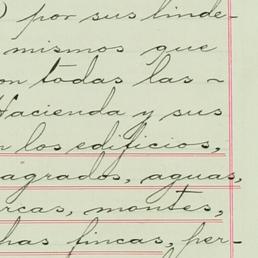 por sus linde-
mismos que
on todas las ~
Hacienda y sus
n los edificios,
agrados, aguas,
rcas, montes,
has fincas, per-